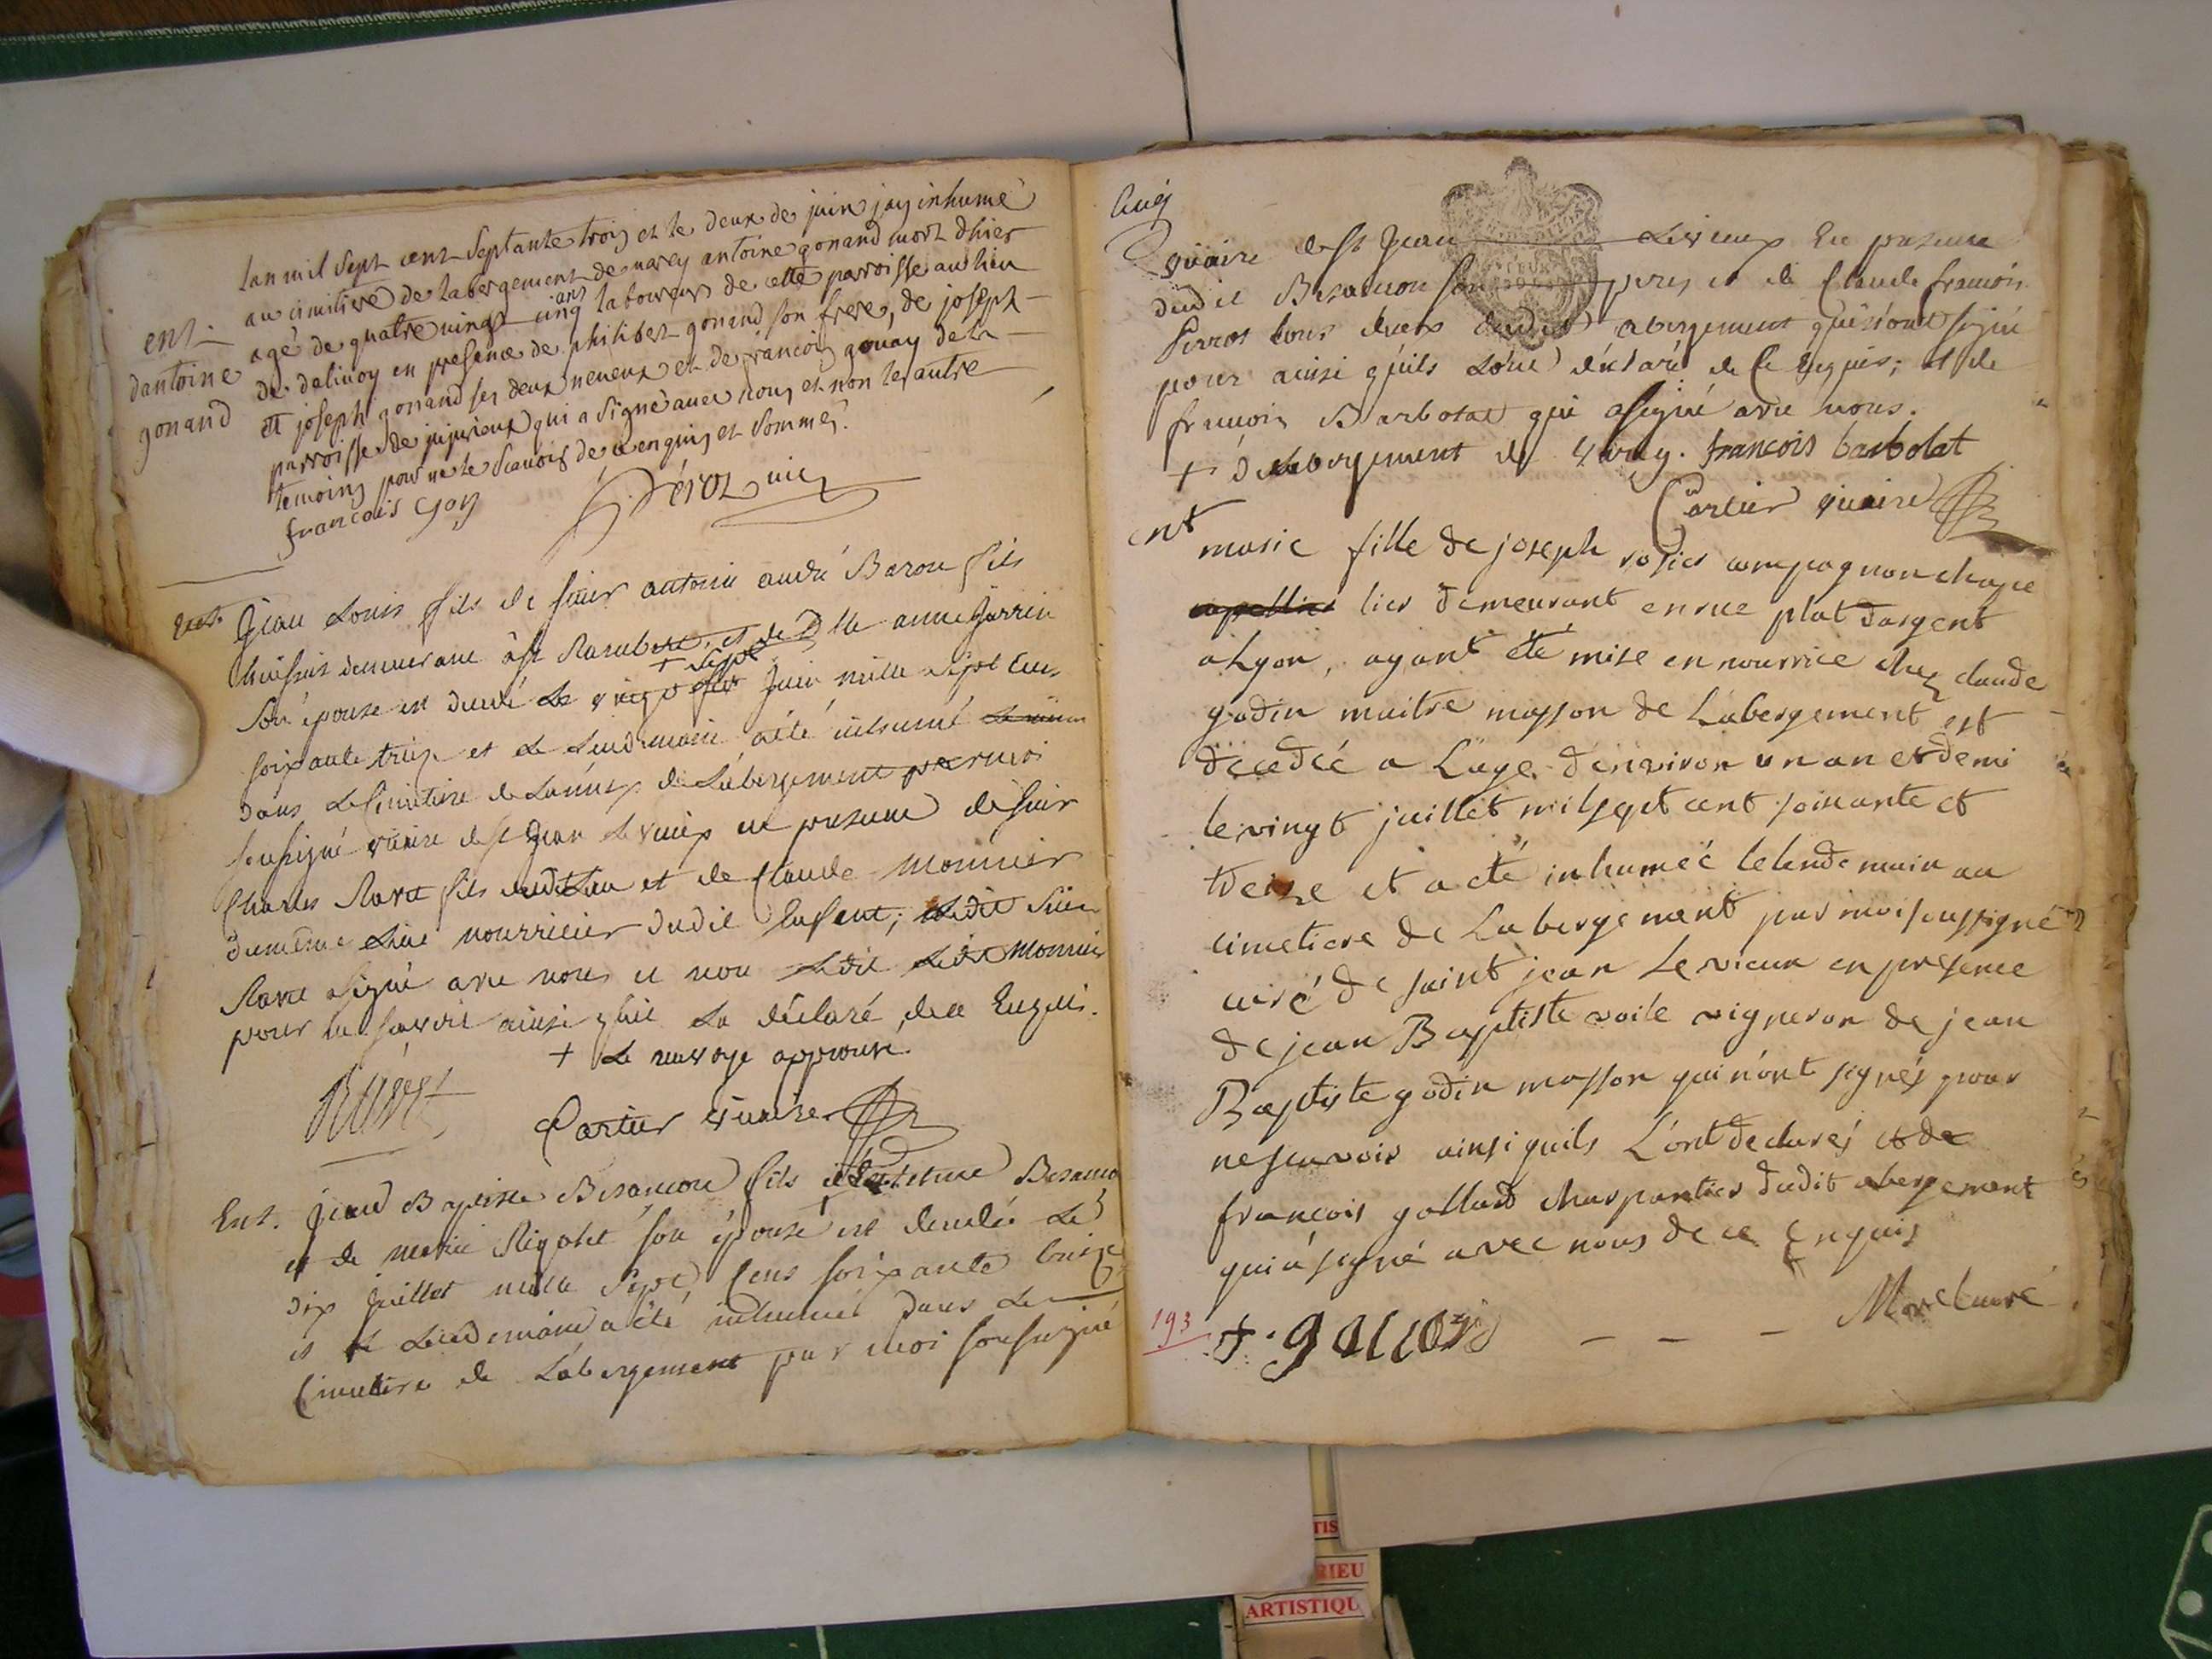 lan mil sept cent septante trois et le deux de juin jay inhumé
au cimitiere de labergement de varey antoine gonand mort dhier
ent
dantoine
gonand
agé de quatre vingt cinq ans laboureur de cette parroisse au lieu
de dalivoy en presence de philibert gonand son frere, de joseph
et joseph gonand ses deux neveux et de francois gouay de la
parroisse de jujurieux qui a signé avec nous et non les autre
temoins pour ne le scauoir de ce enquis et sommés.
françois Goy
Déroz vic
Ent. Jean Louis fils de sieur antoine andré Baron fils
huissier demeurant à st Rambert, et de Dlle anne Jarrin
+ sept
son épouse est decedé le vingt juin mille sept cens
soixante treize et le lendemain a été inhumé
dans le Cimetiere de l'abergement par moi
soussigné vicaire de st Jean le vieux en presence de sieur
Charles Ravet fils dudit lieu et de Claude Monnier
du même lieu nourricier dudit Enfent; ledit sieur
Ravet a signé avec nous et non ledit Monnier
pour ne savoir ainsi qu'il la déclaré, de ce Enquis.
+ le renvoye approuvé.
Ravet
Cartier vicaire
Ent. jean Baptiste Besancon fils d'antoine Besancon
et de marie Rigolet son épouse est decedé le
dix juillet mille sept Cens soixante treize
et le lendemain a été inhumé dans le
Cimetiere de Labergement par moi soussigné
vicaire de st Jean Levieux En presence
dudit Besancon son pere, et de Claude francois
Perros tous deux dudit abergement qui n'ont signé
pour ainsi qu'ils l'ont déclaré de Ce Enquis; et de
francois Barbolat qui a signé avec nous.
+ de Labergement de Varey. francois barbolat
Cartier vicaire
ent marie fille de joseph rosier compagnon chape
lier demeurant en rue plat dargent
a Lyon, ayant été mise en nourrice chez claude
godin maitre masson de Labergement est
decedée a Lage d'environ un an et demi
le vingt juillet mil sept cent soixante et
treize et a été inhumée le lendemain au
cimetiere de Labergement par moi soussigné
curé de saint jean Le vieux en presence
de jean Baptiste voile vigneron de jean
Baptiste godin masson qui n'ont signés pour
ne scavoir ainsi quils L'ont declarés et de
francois gallard charpantier dudit abergement
qui a signé avec nous de ce Enquis
193
Morel curé